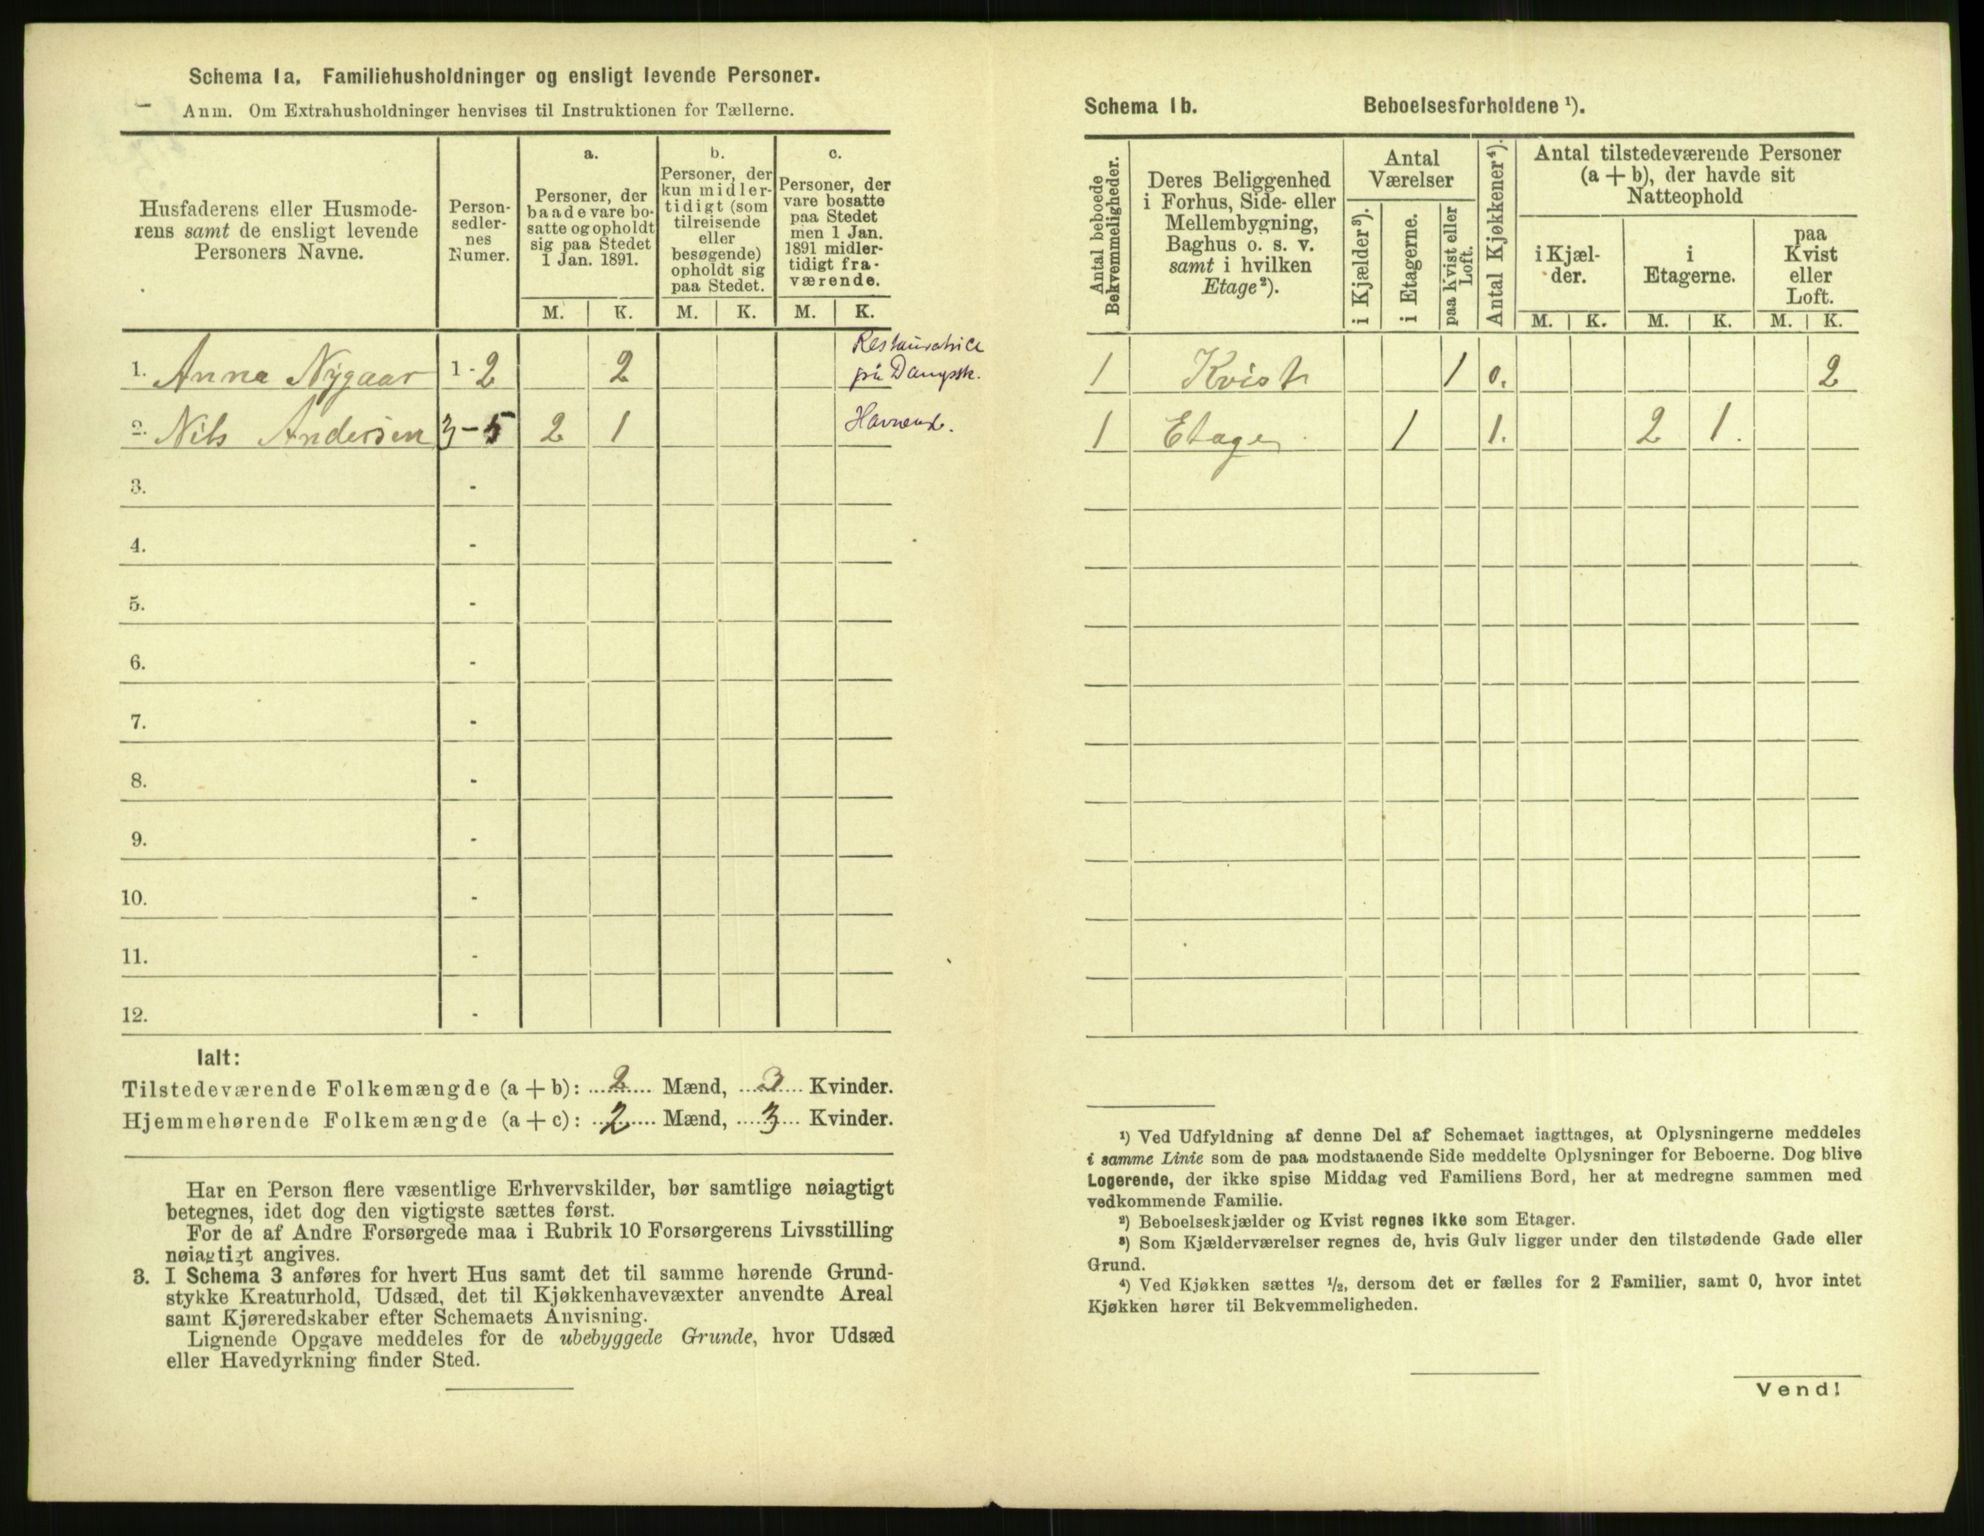 Schema 1a. Familiehusholdninger og ensligt levende Personer.
Anm. Om Extrahusholdninger henvises til Instruktionen for Tællerne.
Husfaderens eller Husmode-
rens samt de ensligt levende
Personers Navne.
Person-
sedler-
nes
Numer.
a.
Personer, der
baade vare bo-
satte og opholdt
sig paa Stedet
1 Jan. 1891.
b.
Personer, der
kun midler-
tidigt (som
tilreisende
eller
besøgende)
opholdt sig
paa Stedet.
c.
Personer, der
vare bosatte
paa Stedet
men 1 Jan.
1891 midler-
tidigt fra-
værende.
M. K. M. K. M. K.
1. Anna Nygaar 1-2 2 Restauratrice
på Dampsk.
2. Nils Andersen 3-5 2 1
3. -
4. -
5. -
6. -
7. -
8. -
9. -
10. -
11. -
12. -
Ialt:
Tilstedeværende Folkemængde (a + b): 2 Mænd, 3 Kvinder.
Hjemmehørende Folkemængde (a + c): 2 Mænd, 3 Kvinder.
Har en Person flere væsentlige Erhvervskilder, bør samtlige nøiagtigt
betegnes, idet dog den vigtigste sættes først.
For de af Andre Forsørgede maa i Rubrik 10 Forsørgerens Livsstilling
nøiagtigt angives.
3. I Schema 3 anføres for hvert Hus samt det til samme hørende Grund-
stykke Kreaturhold, Udsæd, det til Kjøkkenhavevæxter anvendte Areal
samt Kjøreredskaber efter Schemaets Anvisning.
Lignende Opgave meddeles for de ubebyggede Grunde, hvor Udsæd
eller Havedyrkning finder Sted.
Schema 1b. Beboelsesforholdene ¹).
Antal beboede
Bekvemmeligheder.
Deres Beliggenhed
i Forhus, Side- eller
Mellembygning,
Baghus o. s. v.
samt i hvilken
Etage²).
Antal
Værelser
i Kjælder³).
i Etagerne.
paa Kvist eller
Loft.
Antal Kjøkkener⁴).
Antal tilstedeværende Personer
(a + b), der havde sit
Natteophold
i Kjæl-
der.
i
Etagerne.
paa
Kvist
eller
Loft.
M. K. M. K. M. K.
1 Kvist 1 0. 2
1 Etage 1 1. 2 1.
¹) Ved Udfyldning af denne Del af Schemaet iagttages, at Oplysningerne meddeles
i samme Linie som de paa modstaaende Side meddelte Oplysninger for Beboerne. Dog blive
Logerende, der ikke spise Middag ved Familiens Bord, her at medregne sammen med
vedkommende Familie.
²) Beboelseskjælder og Kvist regnes ikke som Etager.
³) Som Kjælderværelser regnes de, hvis Gulv ligger under den tilstødende Gade eller
Grund.
⁴) Ved Kjøkken sættes ½, dersom det er fælles for 2 Familier, samt 0, hvor intet
Kjøkken hører til Bekvemmeligheden.
Vend!